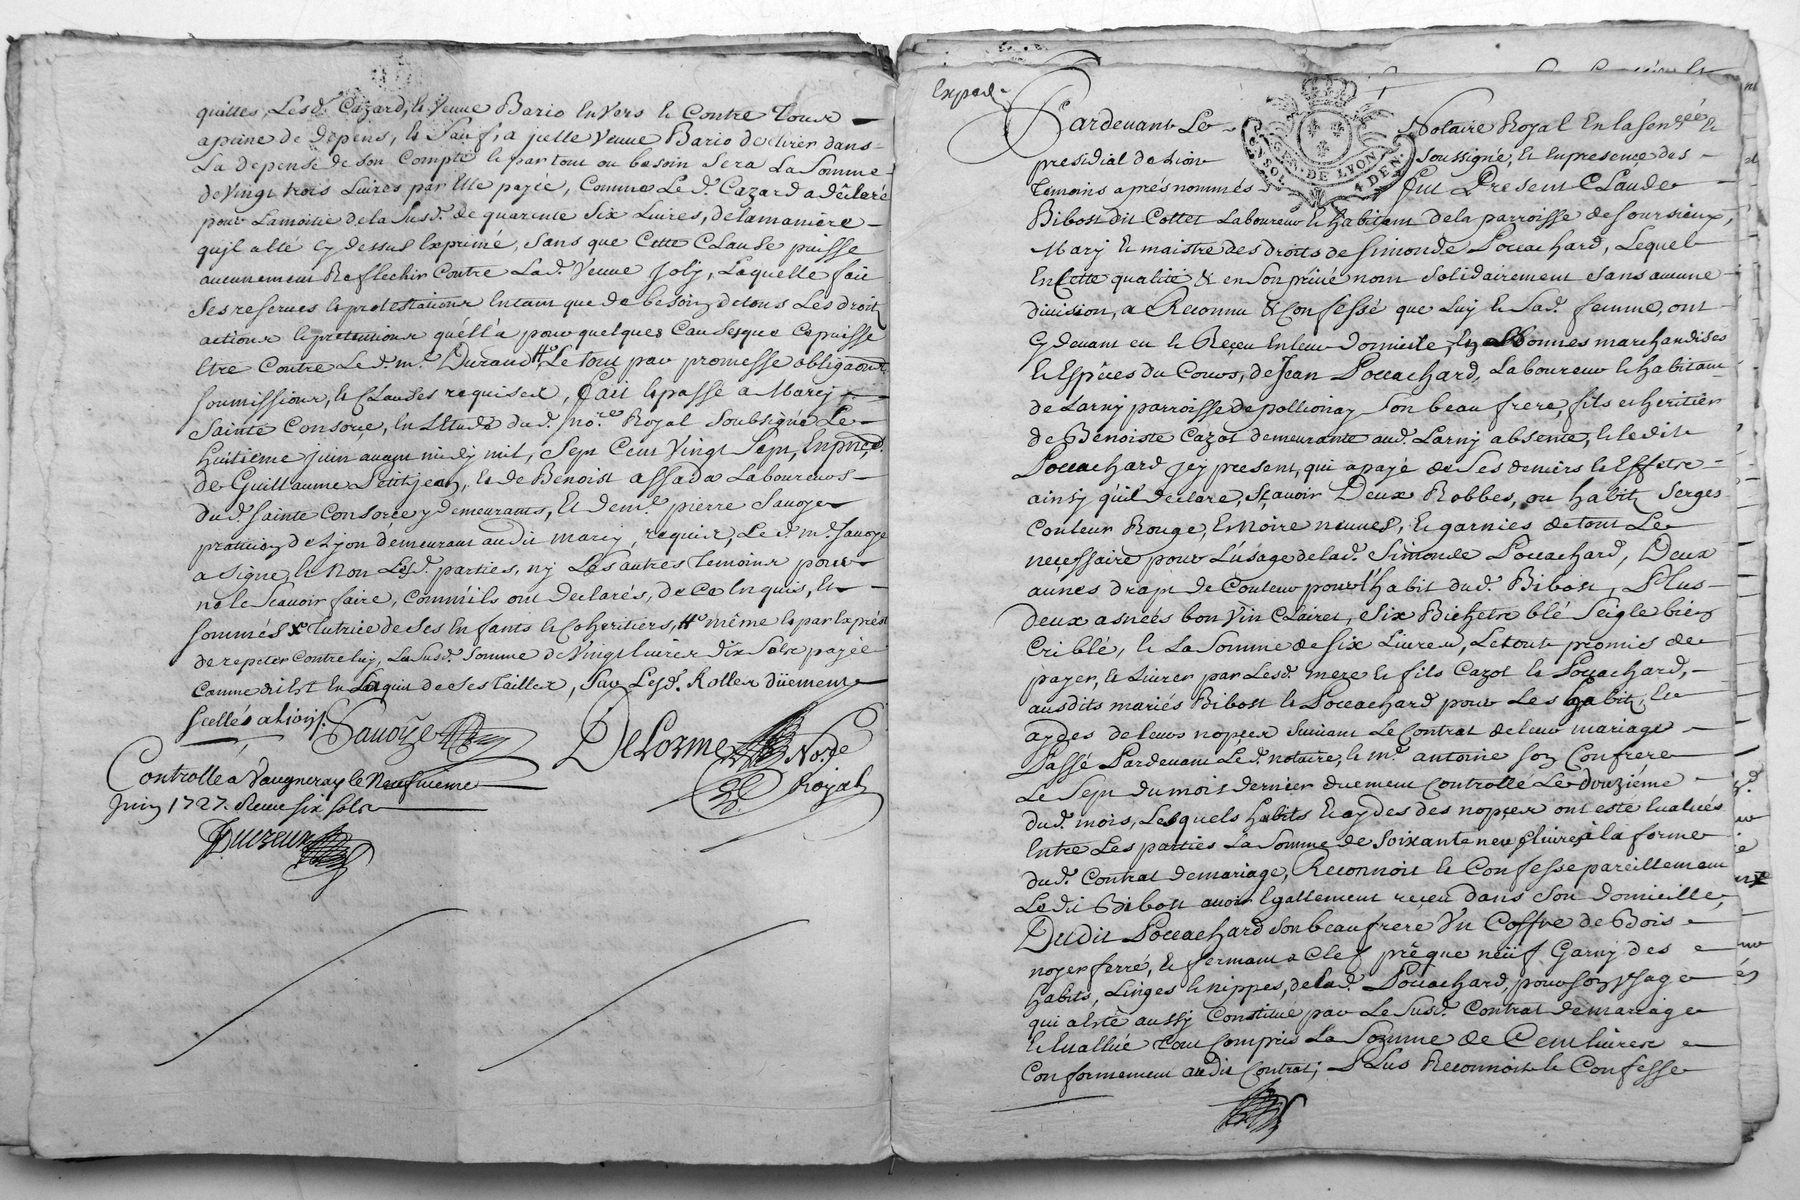 quittes, Lesd. Cazard, et Veuve Bario Envers et Contre Tous
apeine de depens, et Sauf, a jcelle Veuve Bario de tirer dans
La depense de Son Compte et par tout ou besoin Sera La Somme
de Vingt trois Livres par Elle payée, Comme Le d. Cazard a déclaré
pour La moitié de la Susd. de quarente Six Livres, de la maniere
qu'jl a Esté Cy dessus Exprimé, Sans que Cette Clause puisse
aucunement Reflechir Contre Lad. Veuve Joly, Laquelle fait
Ses reserves et protestations Entant que de besoin de tous Les droits
actions et pretentions qu'ell'a pour quelques Causes que Ce puisse
Etre Contre Le d. mr. Durand, Le tout par promesse obligaõn
Soumissions, et Clauses requises, fait et passé a Marcy
Sainte Consorce, En L'Etude dud. no.re Royal Soubsigné Le
huitieme juin avant midy mil, Sept Cent Vingt Sept, En pnce.
de Guillaume Petitjean, et de Benoist assada Laboureurs
dud. Sainte Consorce y demeurants, Et de mr. pierre Savoye
praticien de Lyon demeurant audit marcy, requis, Le d. mr. Savoye
a Signé, et Non Lesd. parties, ny Les autres Temoins pour
ne le Scavoir faire, Comm'ils ont declarés, de Ce Enquis, Et
Sommés x tutrice de Ses Enfants et Coheritiers, même et par Exprés
de repeter Contre luy, La Susd. Somme de Vingt livres dix Sols payée
Comme dit Est En L'aquit de Ses Tailles, Sur Lesd. Rolles düement
Scellés a Lion
Savoÿe
DeLorme No.re
Royal
Controllé a Vaugneray le Neufvieme
Juin 1727. Reçu Six Sols
Expedé
Pardevant Le Notaire Royal En la Senéeé et
GEN. DE LYON
SOL 4 DEN.
presidial de Lion Soussigné, et En presence des
Temoins aprés nommés fut Present Claude
Bibost dit Cottet Laboureur et habitant de la parroisse de Soursieux,
Mary et maistre des droits de Simonde Pocachard, Lequel
En Cette qualité & en Son privé nom Solidairement Sans aucune
division, a Reconnu & Confessé que Luy et Sad. femme, ont
Cy devant eu et Reçeu En leur domicile, En Bonnes marchandises
et Espêces du Cours, de Jean Pocachard, Laboureur et habitant
de Larny parroisse de pollionay Son beau frere, fils et heritier
de Benoiste Cazot demeurante aud. Larny absente, et ledit
Pocachard Jcy present, qui a payé de Ses deniers et Effets
ainsy qu'il declare, Sçavoir Deux Robbes, ou habits Serges
Couleur Rouge, Et Noire neuves, et garnies de tout Le
neçessaire pour L'usage de lad. Simonde Pocachard, Deux
aunes drap de Couleur pour l'habit dud. Bibost, Plus
deux asnées bon Vin Clairet, Six Bichets blé Seigle bien
Criblé, et La Somme de Six Livres, Le tout promis de
payer, et Livrer par Lesd. mere et fils Cazot et Pocachard,
ausdits mariés Bibost et Pocachard pour Les habits, et
aydes de leurs nopces Suivant Le Contrat de leur mariage
Passé Pardevant Le d. notaire, et mr. antoine Son Confrere
Le Sept du mois dernier duement Controllé Le douziéme
dud. mois, Lesquels habits et aydes des nopces ont esté Evalués
Entre Les parties La Somme de Soixante neuf livres à la forme
dud. Contrat de mariage, Reconnoit et Confesse pareillement
Ledit Bibost avoir Egallement reçeu dans Son Domicille,
Dudit Pocachard Son beau frere Un Coffre de Bois
noyer ferré, et fermant a Clef presque neüf Garny des
habits, Linges et nippes, de lad. Pocachard, pour Son Vsage
qui a Esté aussy Constitué par Le Susd. Contrat de mariage
et Evallué tout Compris La Somme de Cent Livres
Conformement audit Contrat; Plus Reconnoit et Confesse